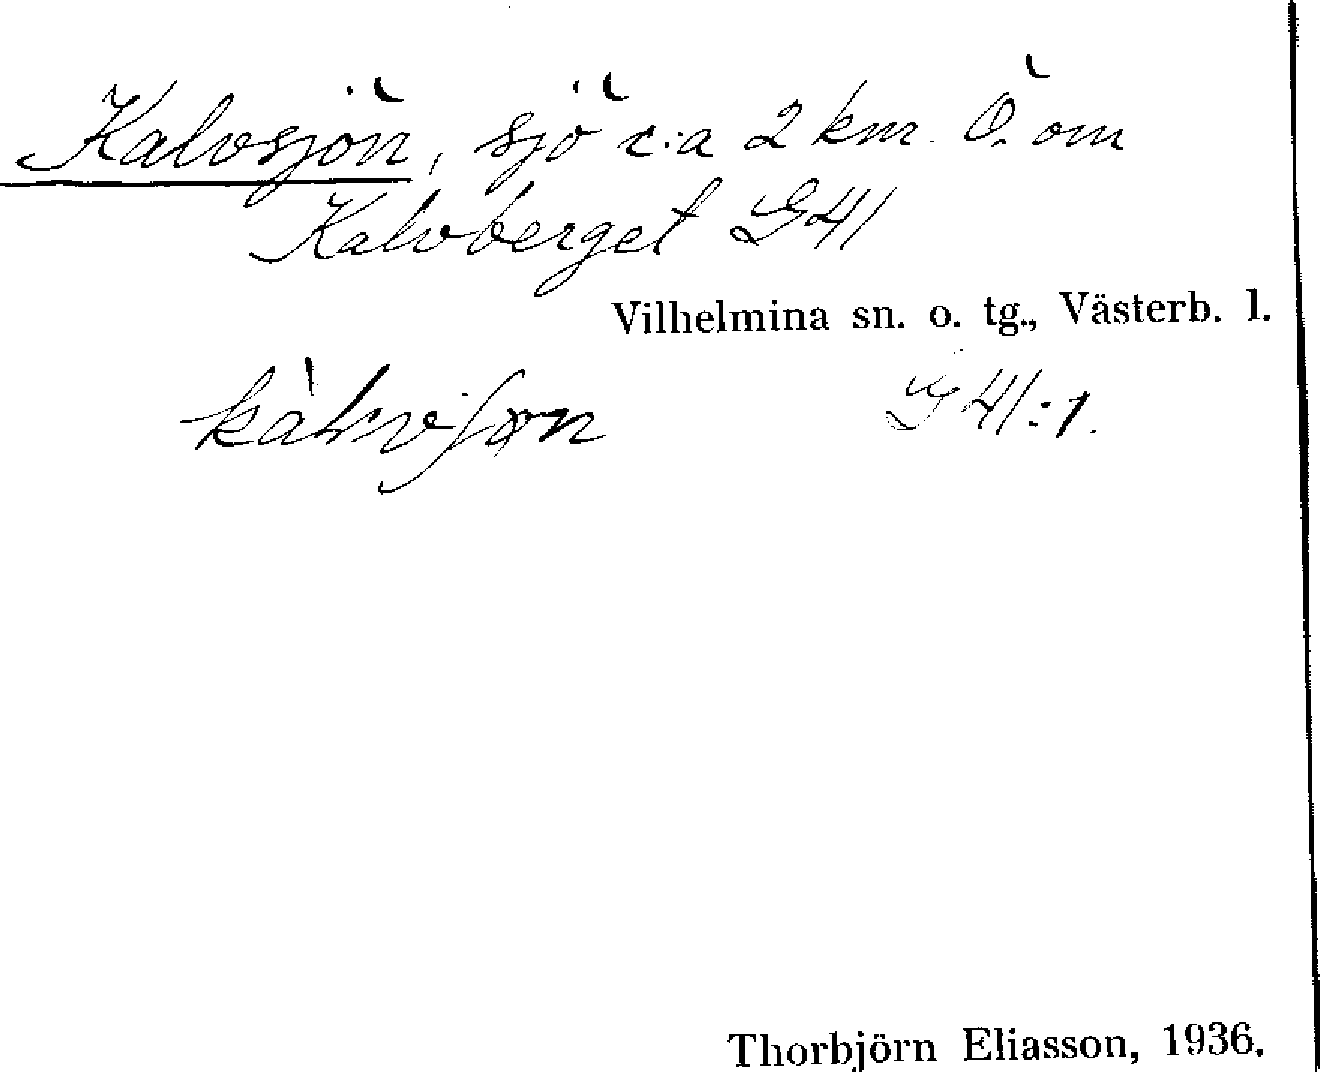 Kalvsjön, sjö c:a 2 km. Ö. om
Kalvberget G41
Vilhelmina sn. o. tg., Västerb. l.
G41:1.
Thorbjörn Eliasson, 1936.